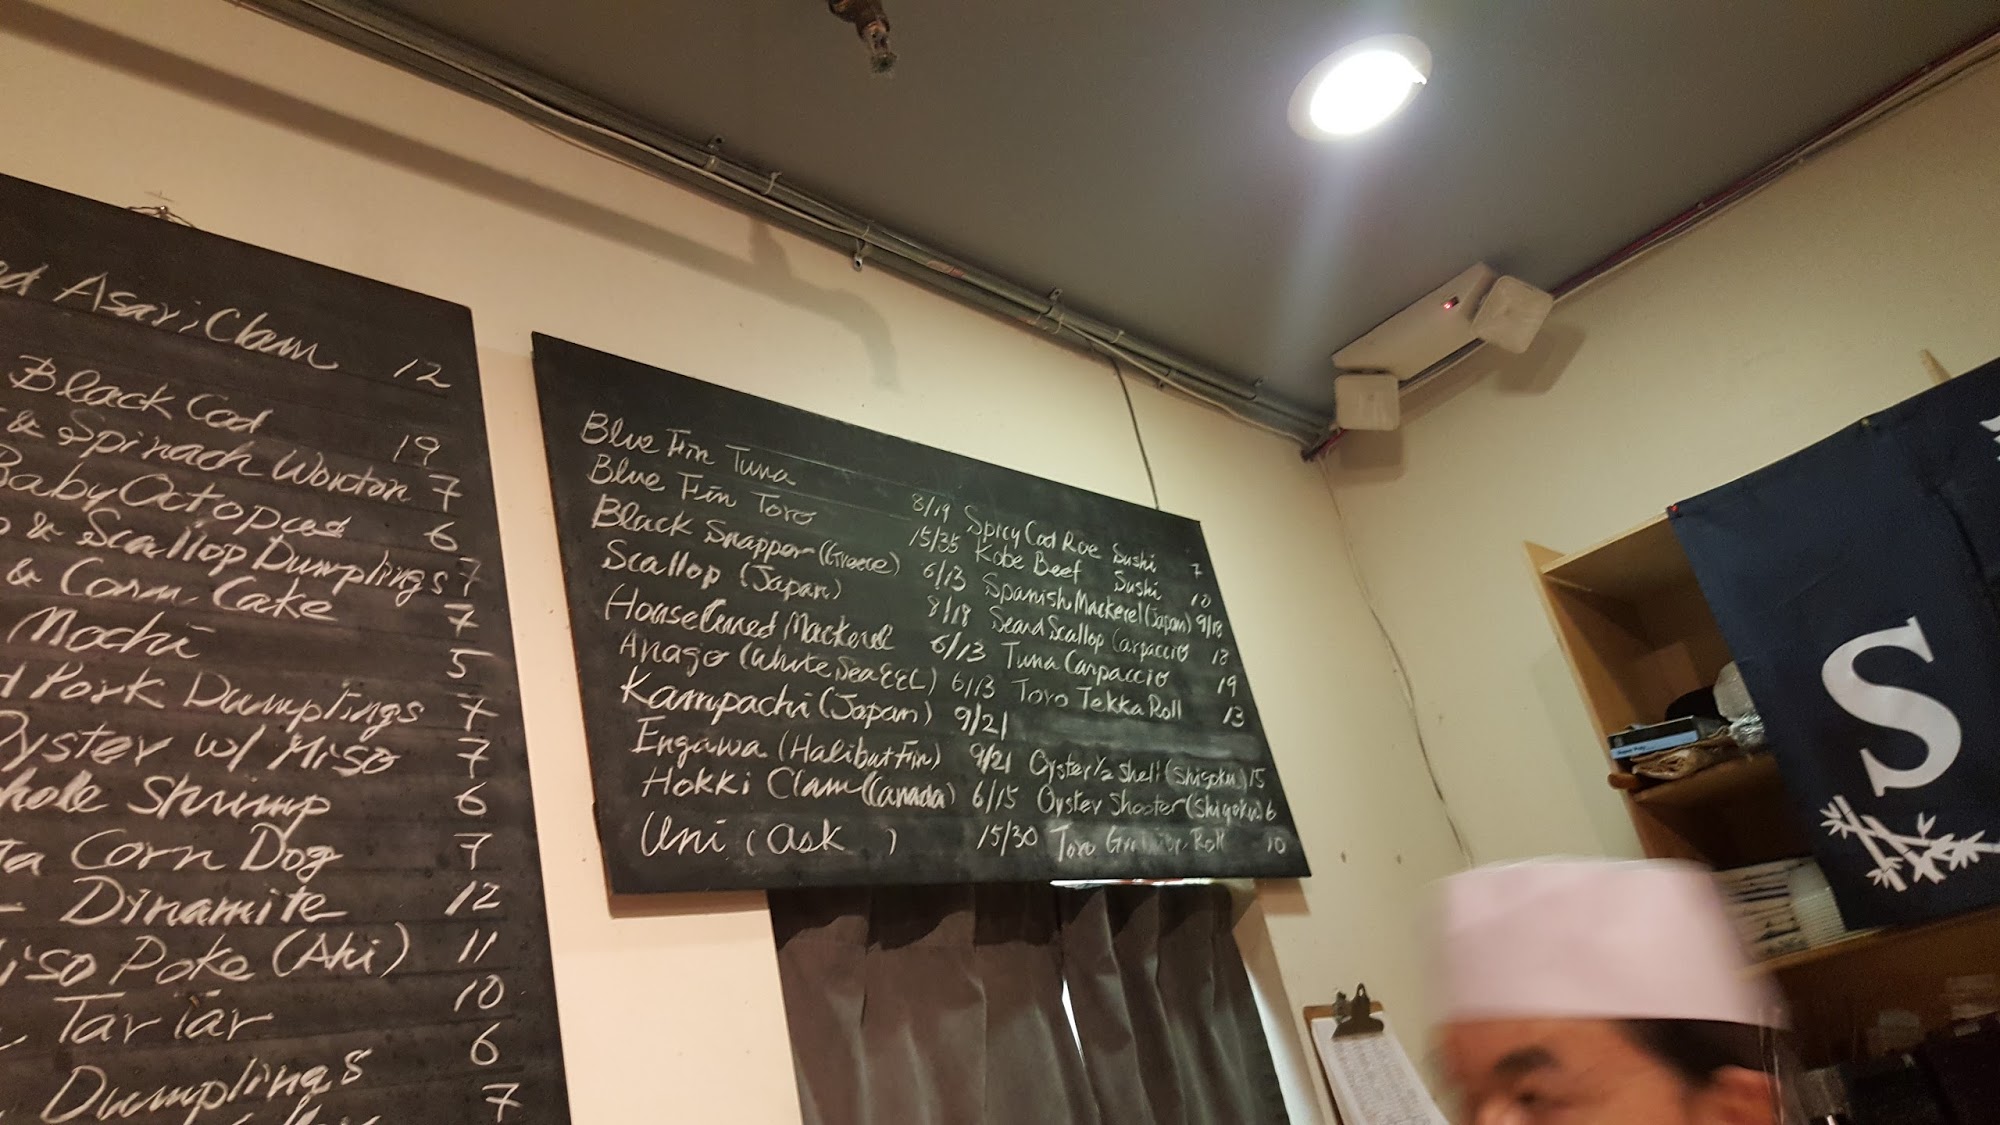 Asari Clam 12
Black Cod 19
& Spinach Wonton 7
Baby Octopus 6
& Scallop Dumplings 7
& Corn Cake 7
Mochi 5
Pork Dumplings 7
Oyster w/ Miso 7
Shrimp 6
Corn Dog 7
Dinamite 12
Poke (Ahi) 11
Tartar 10
Dumplings 6
7
Blue Fin Tuna 8/19
Blue Fin Toro 15/35
Black Snapper (Greece) 6/13
Scallop (Japan) 8/18
House Cured Mackerel 6/13
Anago (White Sea EEL) 6/13
Kampachi (Japan) 9/21
Engawa (Halibut Fin) 9/21
Hokki Clam (Canada) 6/15
Uni (Ask ) 15/30
Spicy Cod Roe Sushi 7
Kobe Beef Sushi 10
Spanish Mackerel (Japan) 9/18
Scallop Carpaccio 18
Tuna Carpaccio 19
Toro Tekka Roll 13
Oyster 1/2 Shell (Shigoku) 15
Oyster Shooter (Shigoku) 6
Toro Roll 10
S